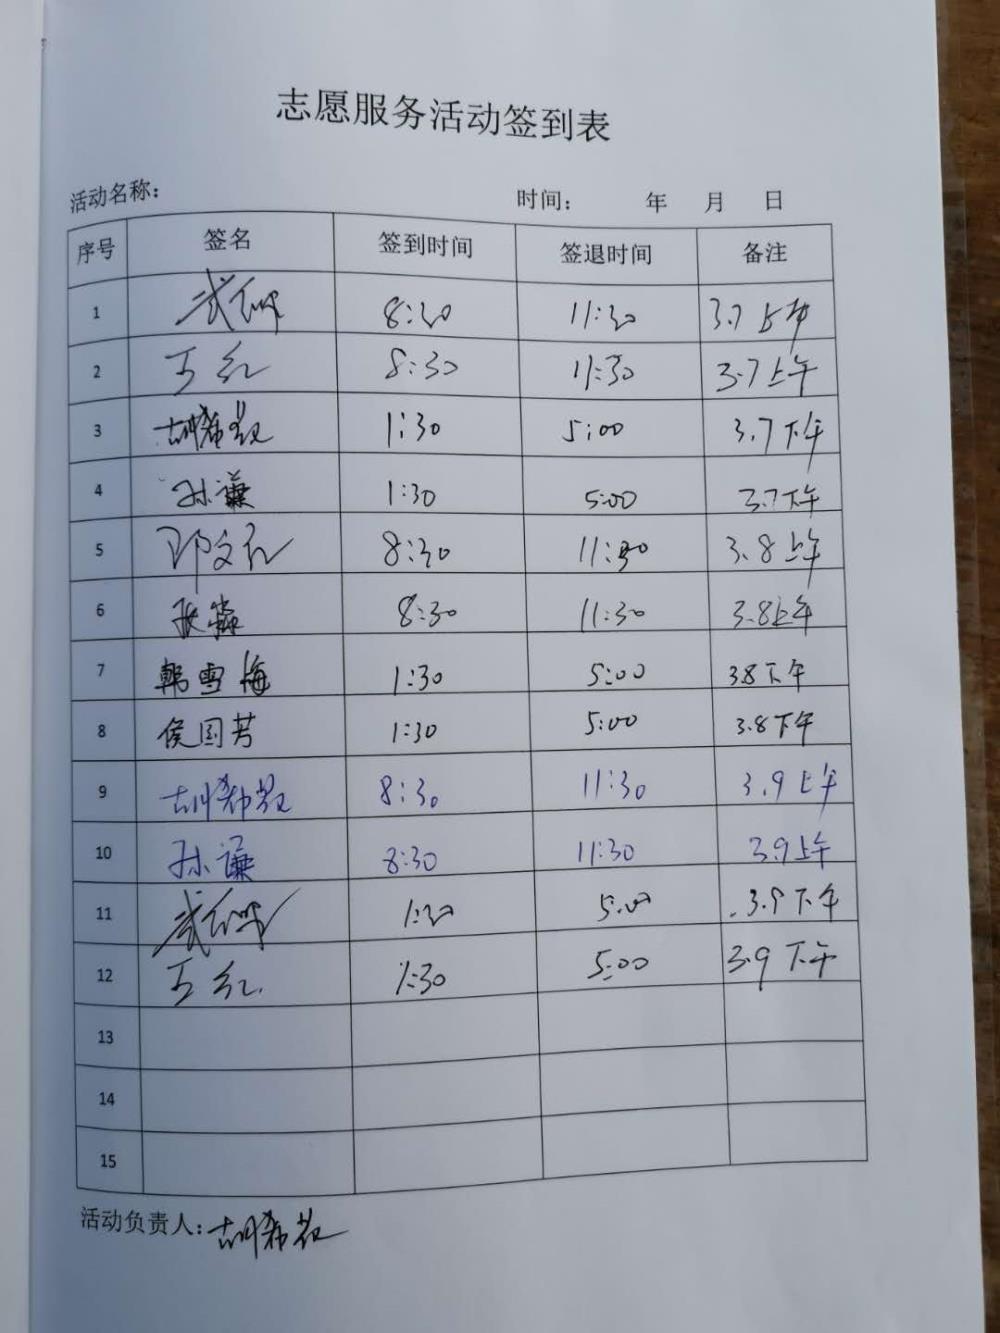 志愿服务活动签到表
活动名称： 时间： 年 月 日
序号 签名 签到时间 签退时间 备注
1 武 8:30 11:30 3.7上午
2 王红 8:30 11:30 3.7上午
3 胡希 1:30 5:00 3.7下午
4 孙谦 1:30 5:00 3.7下午
5 邓文 8:30 11:30 3.8上午
6 张淼 8:30 11:30 3.8上午
7 韩雪梅 1:30 5:00 3.8下午
8 侯国芳 1:30 5:00 3.8下午
9 胡希 8:30 11:30 3.9上午
10 孙谦 8:30 11:30 3.9上午
11 武 1:30 5:00 3.9下午
12 王红 1:30 5:00 3.9下午
13
14
15
活动负责人：胡希